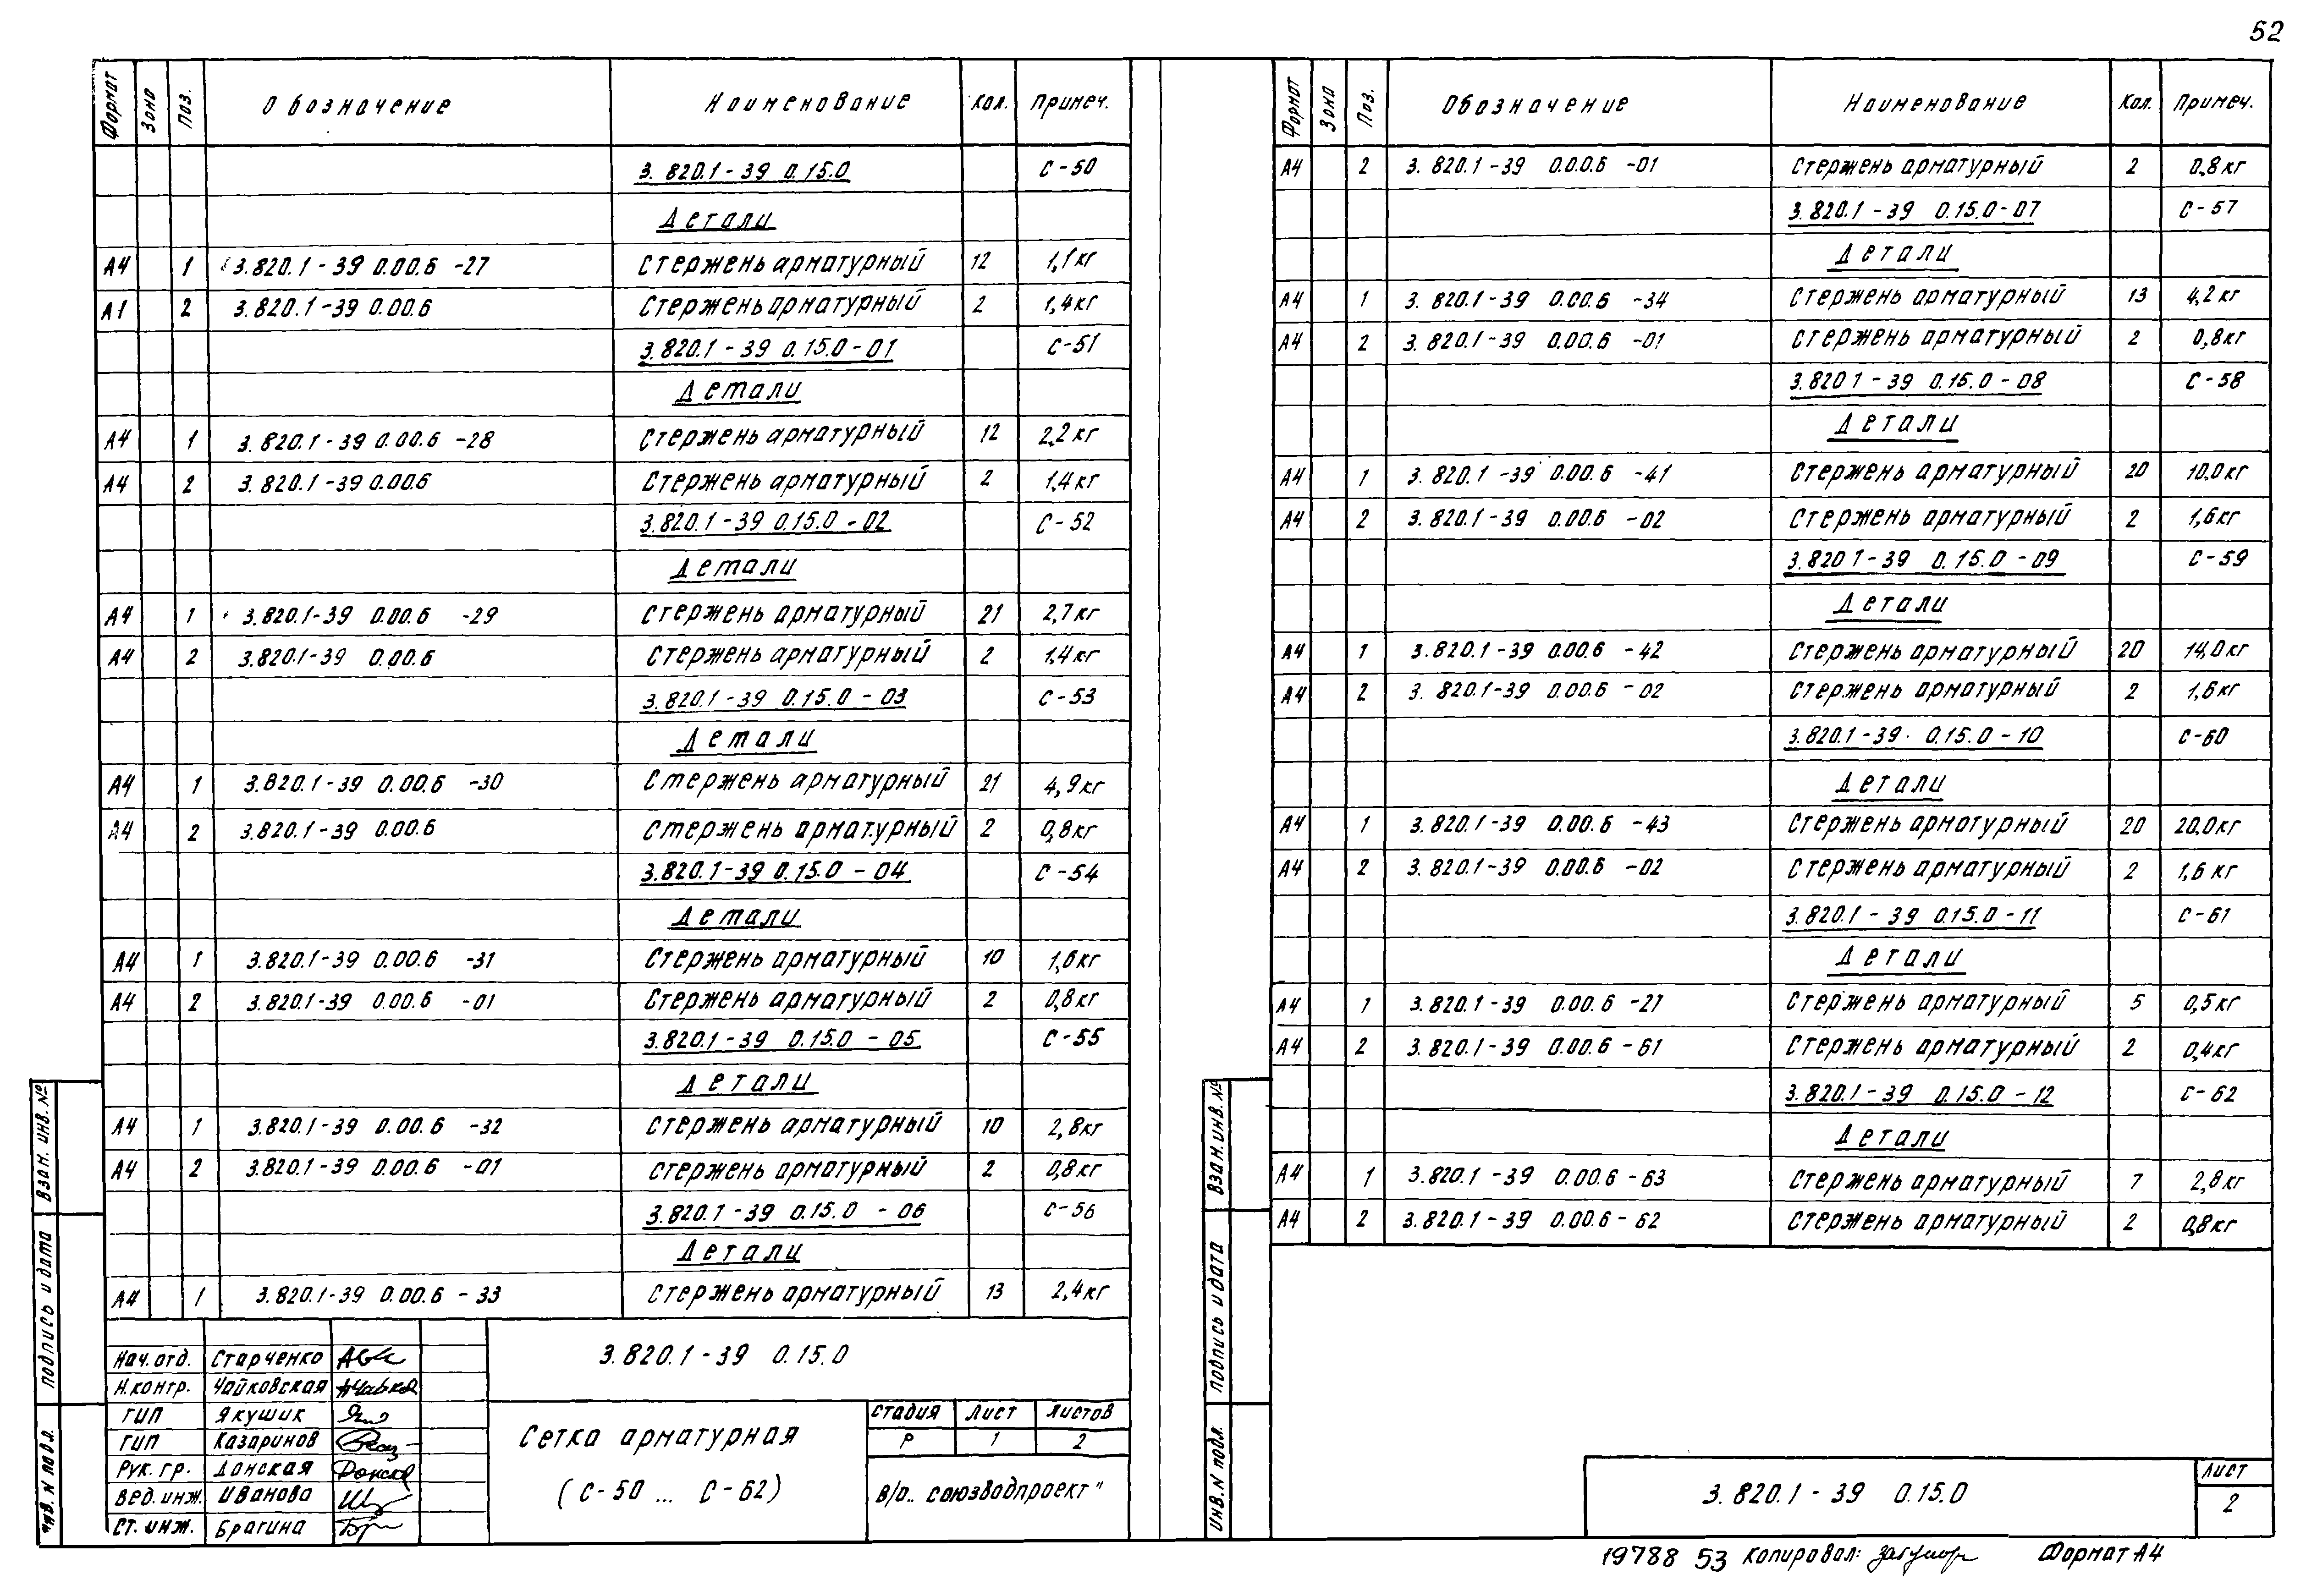 52
Формат Зона Поз. Обозначение Наименование Кол. Примеч.
3.820.1-39 0.15.0 С-50
Детали
А4 1 3.820.1-39 0.00.6 -27 Стержень арматурный 12 1,1кг
А1 2 3.820.1-39 0.00.6 Стержень арматурный 2 1,4кг
3.820.1-39 0.15.0-01 С-51
Детали
А4 1 3.820.1-39 0.00.6 -28 Стержень арматурный 12 2,2кг
А4 2 3.820.1-39 0.00.6 Стержень арматурный 2 1,4кг
3.820.1-39 0.15.0-02 С-52
Детали
А4 1 3.820.1-39 0.00.6 -29 Стержень арматурный 21 2,7кг
А4 2 3.820.1-39 0.00.6 Стержень арматурный 2 1,4кг
3.820.1-39 0.15.0-03 С-53
Детали
А4 1 3.820.1-39 0.00.6 -30 Стержень арматурный 21 4,9кг
А4 2 3.820.1-39 0.00.6 Стержень арматурный 2 0,8кг
3.820.1-39 0.15.0-04 С-54
Детали
А4 1 3.820.1-39 0.00.6 -31 Стержень арматурный 10 1,6кг
А4 2 3.820.1-39 0.00.6 -01 Стержень арматурный 2 0,8кг
3.820.1-39 0.15.0-05 С-55
Детали
А4 1 3.820.1-39 0.00.6 -32 Стержень арматурный 10 2,8кг
А4 2 3.820.1-39 0.00.6 -01 Стержень арматурный 2 0,8кг
3.820.1-39 0.15.0-06 С-56
Детали
А4 1 3.820.1-39 0.00.6 -33 Стержень арматурный 13 2,4кг
3.820.1-39 0.15.0
Нач.отд. Старченко
Н.контр. Чайковская
ГИП Якушик
ГИП Казаринов
Рук.гр. Донская
Вед.инж. Иванова
Ст.инж. Брагина
Сетка арматурная
(С-50 ... С-62)
Стадия Лист Листов
Р 1 2
В/О „Союзводпроект"
Взам.инв.№
Подпись и дата
Инв.N подл.
Формат Зона Поз. Обозначение Наименование Кол. Примеч.
А4 2 3.820.1-39 0.0.0.6 -01 Стержень арматурный 2 0,8кг
3.820.1-39 0.15.0-07 С-57
Детали
А4 1 3.820.1-39 0.00.6 -34 Стержень арматурный 13 4,2кг
А4 2 3.820.1-39 0.00.6 -01 Стержень арматурный 2 0,8кг
3.820 1-39 0.15.0-08 С-58
Детали
А4 1 3.820.1-39 0.00.6 -41 Стержень арматурный 20 10,0кг
А4 2 3.820.1-39 0.00.6 -02 Стержень арматурный 2 1,6кг
3.820 1-39 0.15.0-09 С-59
Детали
А4 1 3.820.1-39 0.00.6 -42 Стержень арматурный 20 14,0кг
А4 2 3.820.1-39 0.00.6 -02 Стержень арматурный 2 1,6кг
3.820.1-39 0.15.0-10 С-60
Детали
А4 1 3.820.1-39 0.00.6 -43 Стержень арматурный 20 20.0кг
А4 2 3.820.1-39 0.00.6 -02 Стержень арматурный 2 1,6кг
3.820.1-39 0.15.0-11 С-61
Детали
А4 1 3.820.1-39 0.00.6 -27 Стержень арматурный 5 0,5кг
А4 2 3.820.1-39 0.00.6 -61 Стержень арматурный 2 0,4кг
3.820.1-39 0.15.0-12 С-62
Детали
А4 1 3.820.1-39 0.00.6 -63 Стержень арматурный 7 2,8кг
А4 2 3.820.1-39 0.00.6 -62 Стержень арматурный 2 0,8кг
Взам.инв.№
Подпись и дата
Инв.N подл.
3.820.1-39 0.15.0
Лист
2
19788 53 Копировал: Формат А4